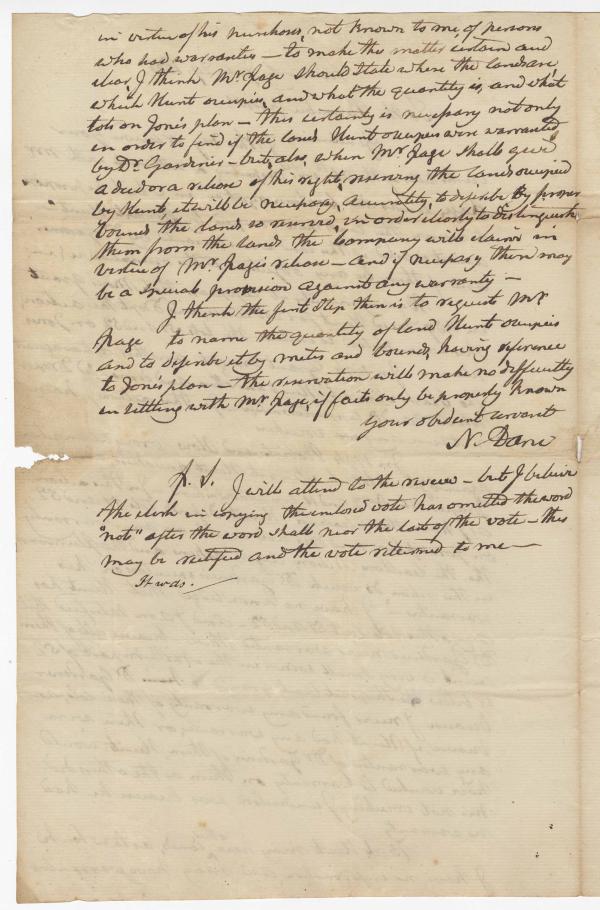 in virtue of his purchase, not known to me, of persons
who had warranties – to make this matter certain and
clear, I think Mr Page should state where the lands are,
which Hunt occupies, and what the quantity is, and what
lots on Jones plan – this certainty is necessary not only
in order to find if the lands Hunt occupies were warranted
by Dr. Gardiner – but, also, when Mr. Page shall give
a deed or a release of his right, reserving the lands occupied
by Hunt, it will be necessary, accurately, to describe by proper
bounds the lands so reserved, in order clearly to distinguish
them from the lands the Company will claim in
virtue of Mr. Page's release – and if necessary there may
be a special provision against any warranty –
I think the first step then is to request Mr
Page to name the quantity of land Hunt occupies
and to describe it by metes and bounds, having reference
to Jones plan – the reservation will make no difficulty
in settling with Mr. Page, if facts only be properly known
Your obedient servant
N. Dane
P. S. I will attend to the review – but I believe
the clerk in copying the enclosed vote has omitted the word
"not" after the word shall near the last of the vote – this
may be rectified and the vote returned to me –
It was. –